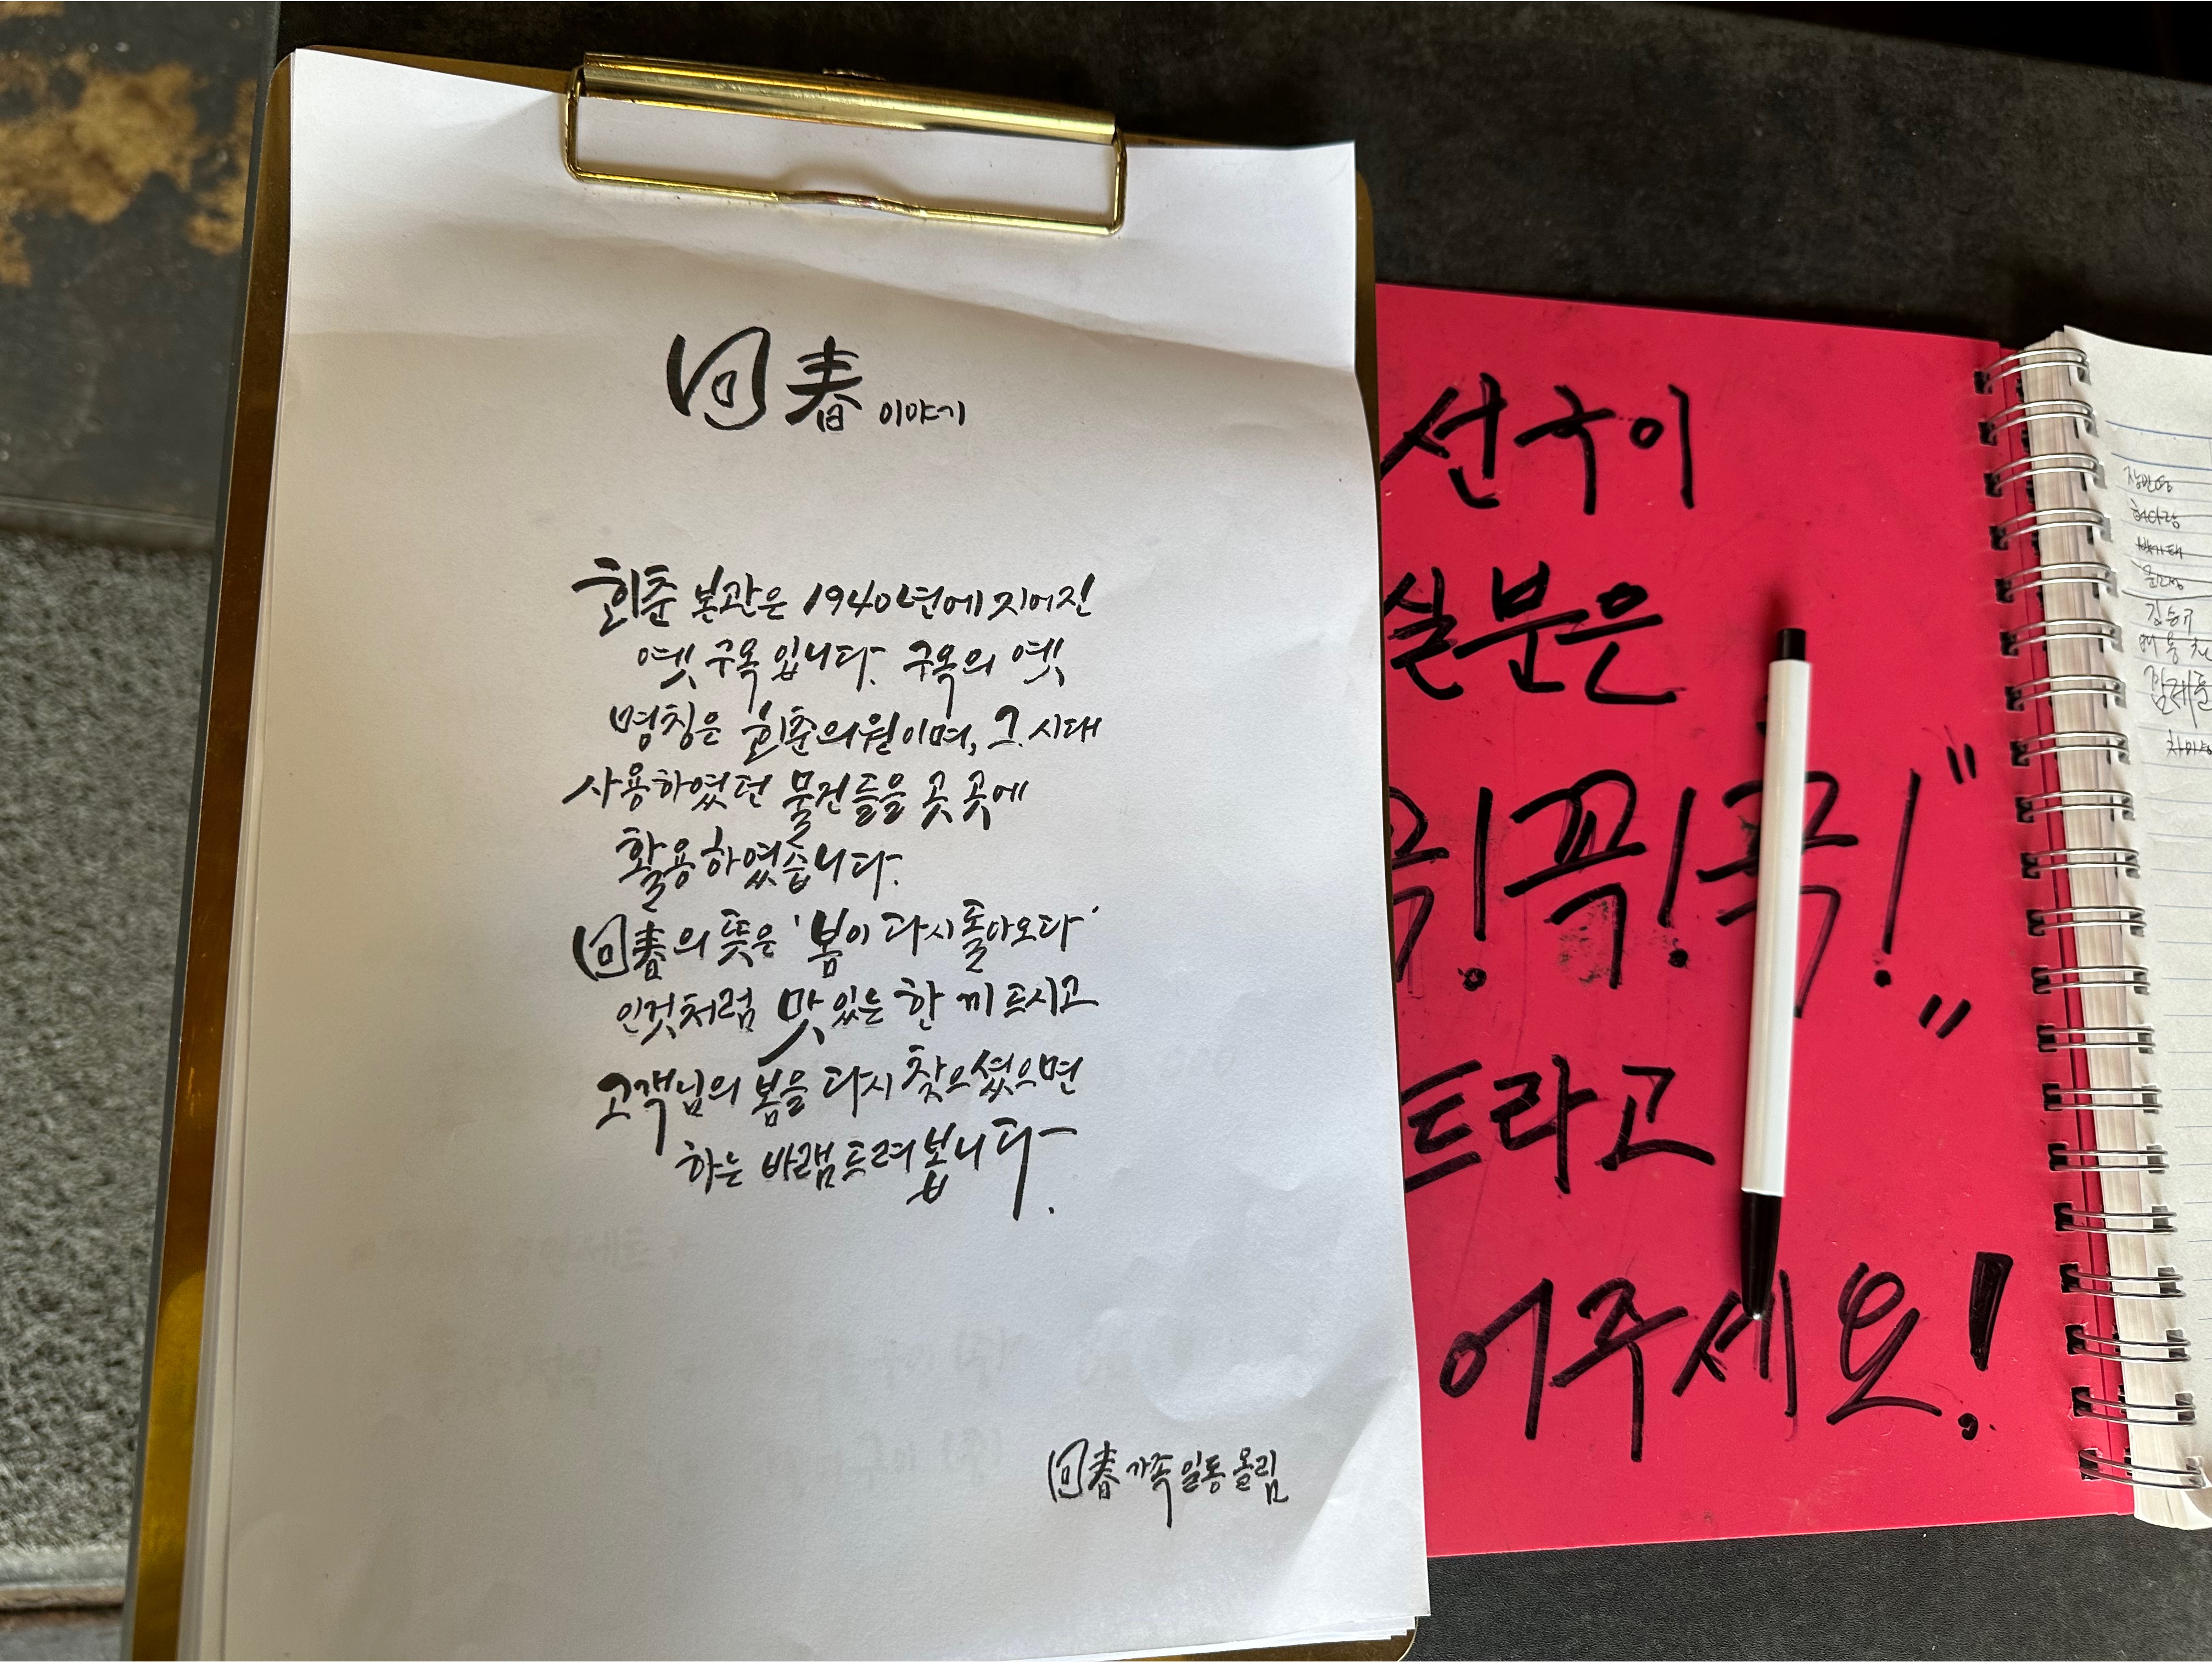 回春 이야기
회춘 본관은 1940년에 지어진
옛 구옥 입니다. 구옥의 옛
명칭은 회춘의원이며, 그 시대
사용하였던 물건들을 곳곳에
활용하였습니다.
回春의 뜻은 '봄이 다시 돌아오다'
인것처럼 맛있는 한 끼 드시고
고객님의 봄을 다시 찾으셨으면
하는 바램 드려봅니다.
回春 가족 일동 올림
선구이
실분은
꼭! 꼭! 꼭!"
"
트라고
어주세요!